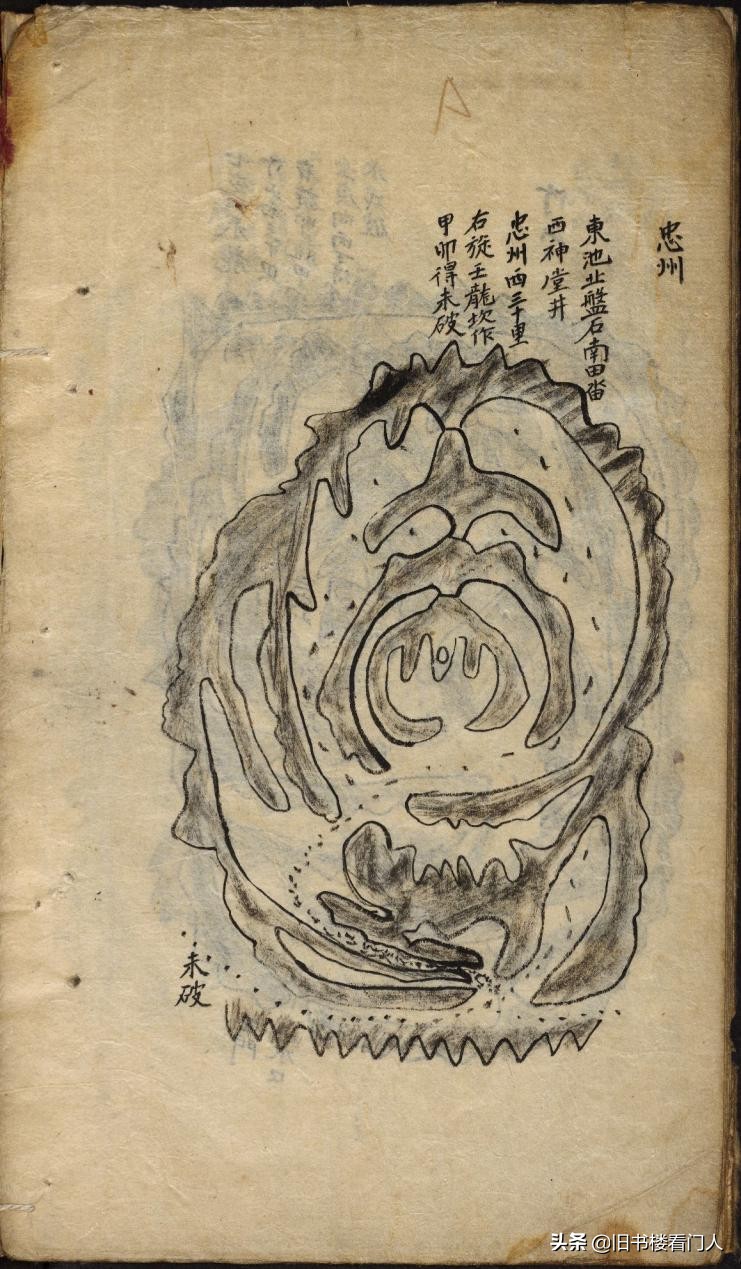 忠州
東池北盤石南田畓
西神堂井
忠州西三十里
右旋壬龍坎作
甲卯得未破
未破
A
头条 @旧书楼看门人